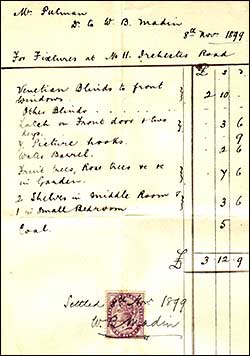 Mr. Pulman
Dr. to W. B. Madin
8th Nov 1899
For Fixtures at No 11. Road
£ s. d.
Venetian Blinds to front
Windows 2 10 .
Other Blinds . . .
Latch on Front door & two
keys. 3 6
4 Picture hooks. 9
Water Barrel. 2 6
Fruit trees, Rose trees &c &c
in Garden. 7 6
2 Shelves in Middle Room &
1 in Small Bedroom 3 6
Coal. 5
£ 3 . 12 . 9
Settled 8th Nov 1899
W B Madin